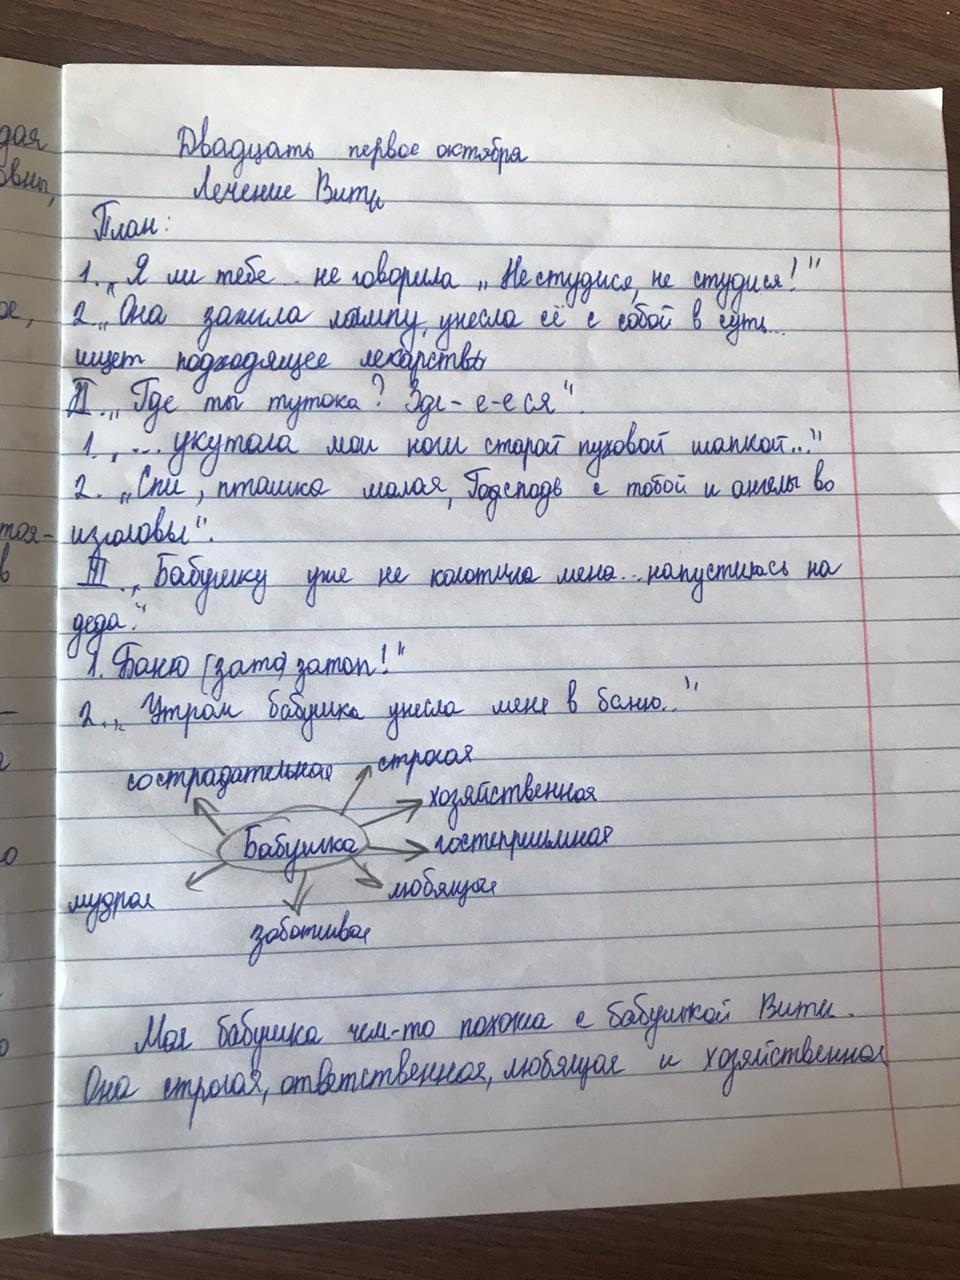 дая
овны,
ре,
тоя-
в
о
о
Двадцать первое октября
Лечение Вити
План:
1. „Я ли тебе.. не говорила „Не студися, не студися!"
2. „Она зажила лампу, унесла её с собой в суть...
ищет подходящее лекарство
II. „Где ты тутока? Зде-е-еся".
1. „... укутала мои ноги старой пуховой шапкой..."
2. „Спи, пташка малая, Годсподь с тобой и ангелы во
изголовьи".
III „Бабушку уже не колотила мена... напустилась на
деда."
1. Баню (зато) затоп!"
2. „Утром бабушка унесла меня в баню.."
сострадательная строгая
хозяйственная
Бабушка гостеприимная
мудрая любящая
заботливая
Моя бабушка чем-то похожа с бабушкой Вити.
Она строгая, ответственная, любящая и хозяйственная